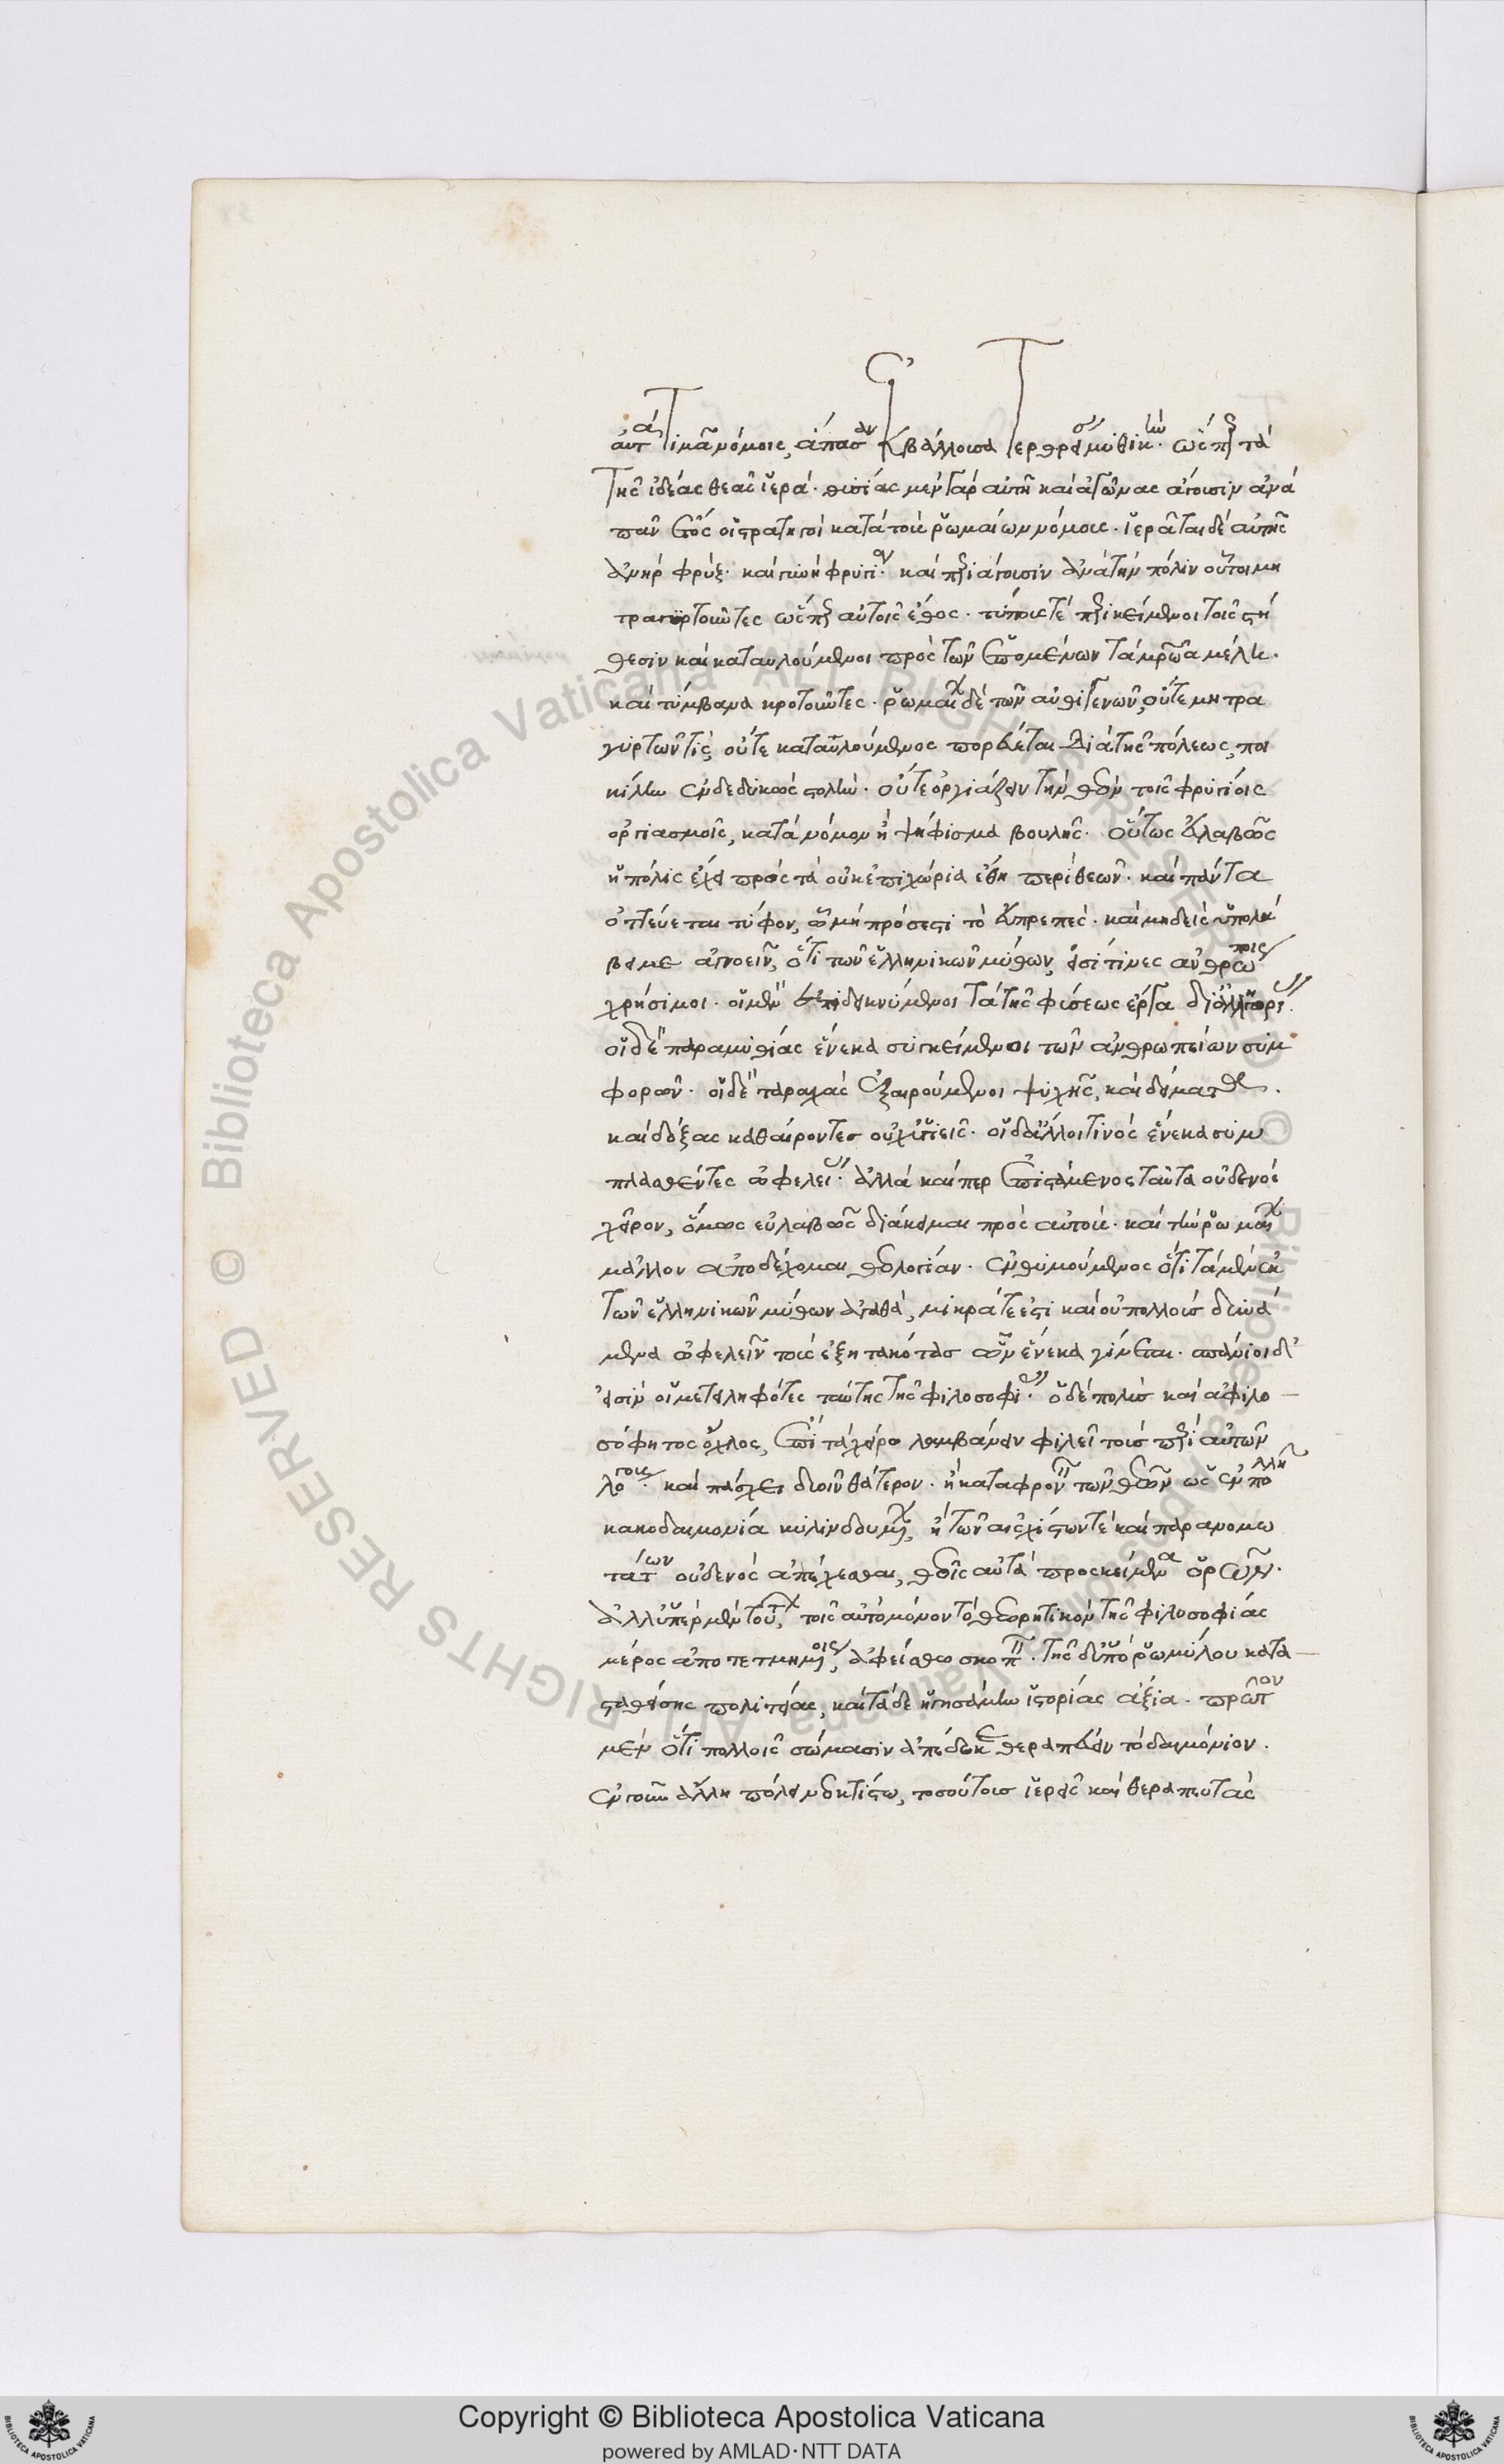 αὐτὰ τιμᾶ νόμοις, ἅπασαν ἐκβάλλουσα τερθρείαν μυθικήν. ὥσπερ τὰ
τῆς ἰδέας θεᾶς ἱερά. θυσίας μὲν γὰρ αὐτῆ καὶ ἀγῶνας ἄγουσιν ἀνὰ
πᾶν ἔτος οἱ στρατηγοὶ κατὰ τοὺς ῥωμαίων νόμους. ἱερᾶται δὲ αὐτῆς
ἀνὴρ φρύξ. καὶ γυνὴ φρυγία. καὶ περιάγουσιν ἀνὰ τὴν πόλιν οὗτοι μη
τραγυρτοῦντες ὥσπερ αὐτοῖς ἔθος. τύπους τὲ περικείμενοι τοῖς στή
θεσιν καὶ καταυλούμενοι πρὸς τῶν ἑπομένων τὰ μρῶα μέλη.
καὶ τύμβανα κροτοῦντες. ῥωμαίων δὲ τῶν αὐθιγενῶν, οὔτε μητρα
γυρτῶν τίς, οὔτε καταυλούμενος πορεύεται διὰ τῆς πόλεως, ποι
κίλην ἐνδεδυκὼς στολήν. οὔτε ὀργιάζειν τὴν θεὸν τοῖς φρυγίοις
ὀργιασμοῖς, κατὰ νόμον ἢ ψήφισμα βουλῆς. οὕτως εὐλαβῶς
ἡ πόλις ἔχει πρὸς τὰ οὐκ ἐπιχώρια ἔθη περὶ θεῶν. καὶ πάντα
ὀττεύεται τύφον, ᾧ μὴ πρόσεστι τὸ εὐπρεπές. καὶ μηδεὶς ὑπολά
βει με ἀγνοεῖν, ὅτι τῶν ἑλληνικῶν μύθων, εἰσί τινες ἀνθρώποις
χρήσιμοι. οἱ μὲν ἐπιδεικνύμενοι τὰ τῆς φύσεως ἔργα δι ἀλληγορίας.
οἱ δὲ παραμυθίας ἕνεκα συγκείμενοι τῶν ἀνθρωπείων συμ
φορῶν. οἱ δὲ ταραχὰς ἐξαιρούμενοι ψυχῆς, καὶ δείματα.
καὶ δόξας καθαίροντες οὐχ ὑγιεῖς. οἱ δ ἄλλου τινὸς ἕνεκα συμ
πλασθέντες ὠφελείας. ἀλλὰ καίπερ ἐπιστάμενος ταῦτα οὐδενὸς
χεῖρον, ὅμως εὐλαβῶς διάκειμαι πρὸς αὐτούς. καὶ τὴν ῥωμαίων
μᾶλλον ἀποδέχομαι θεολογίαν. ἐνθυμούμενος ὅτι τὰ μὲν ἐκ
τῶν ἑλληνικῶν μύθων ἀγαθά, μικρά τε ἐστι καὶ οὐ πολλοὺς δυνά
μενα ὠφελεῖν τοὺς ἐξητακότας ὧν ἕνεκα γίνεται. σπάνιοι δ
εἰσὶν οἱ μετειληφότες ταύτης τῆς φιλοσοφίας. ὁ δὲ πολὺς καὶ ἀφιλο
σόφητος ὄχλος, ἐπὶ τὰ χείρω λαμβάνειν φιλεῖ τοὺς περὶ αὐτῶν
λόγους. καὶ πάσχει δυοῖν θάτερον. ἢ καταφρονεῖ τῶν θεῶν ὡς ἐν πολλῆ
κακοδαιμονία κυλινδουμένων, ἢ τῶν αἰσχίστων τὲ καὶ παρανομω
τάτων οὐδενὸς ἀπέχεσθαι, θεοῖς αὐτὰ προσκείμενα ὁρῶν.
ἀλλ ὑπὲρ μὲν τούτων, τοῖς αὐτὸ μόνον τὸ θεωρητικὸν τῆς φιλοσοφίας
μέρος ἀποτετμημένοις, ἀφείσθω σκοπεῖν. τῆς δ ὑπὸ ῥωμύλου κατα
σταθείσης πολιτείας, καὶ τάδε ἡγησάμην ἱστορίας ἄξια. πρῶτον
μὲν ὅτι πολλοῖς σώμασιν ἀπέδωκε θεραπεύειν τὸ δαιμόνιον.
ἐν γοῦν ἄλλη πόλει νεοκτίστω, τοσούτους ἱερεῖς καὶ θεραπευτὰς
© Biblioteca Apostolica Vaticana ALL RIGHTS RESERVED
© Biblioteca Apostolica Vaticana ALL RIGHTS RESERVED
Copyright © Biblioteca Apostolica Vaticana
powered by AMLAD·NTT DATA
BIBLIOTECA APOSTOLICA VATICANA
BIBLIOTECA APOSTOLICA VATICANA